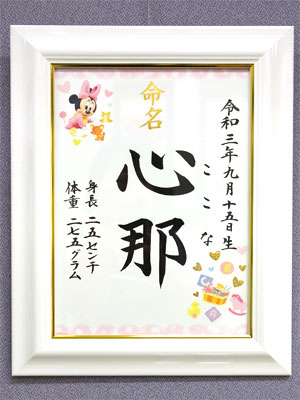 命名
令和三年九月十五日生
ここな
心那
身長 二五センチ
体重 二七五グラム